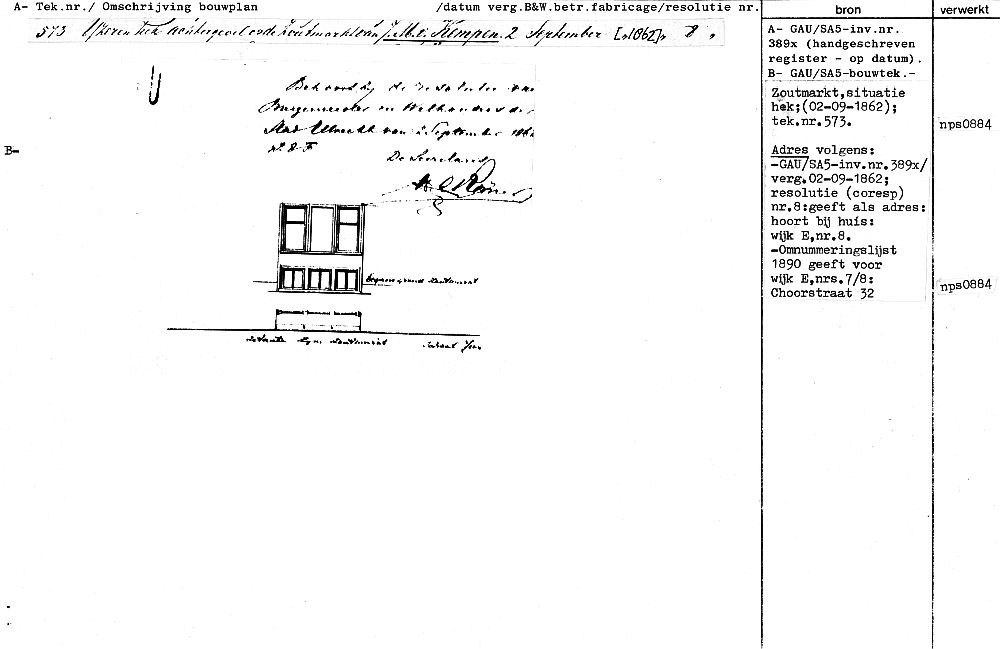 A- Tek.nr./ Omschrijving bouwplan /datum verg.B&W.betr.fabricage/resolutie nr.
bron
verwerkt
573 IJzeren hek achtergevel op de Zoutmarkt van J. M. v. Kempen. 2 September [„1862]„ 8 „
Behoort bij de resolutie van
Burgemeester en Wethouders der
Stad Utrecht van 2 September 1862
No. 8 F
De Secretaris
B-
A- GAU/SA5-inv.nr.
389x (handgeschreven
register - op datum).
B- GAU/SA5-bouwtek.-
Zoutmarkt,situatie
hek;(02-09-1862);
tek.nr.573.
nps0884
Adres volgens:
-GAU/SA5-inv.nr.389x/
verg.02-09-1862;
resolutie (coresp)
nr.8:geeft als adres:
hoort bij huis:
wijk E,nr.8.
-Omnummeringslijst
1890 geeft voor
wijk E,nrs.7/8:
Choorstraat 32
nps0884